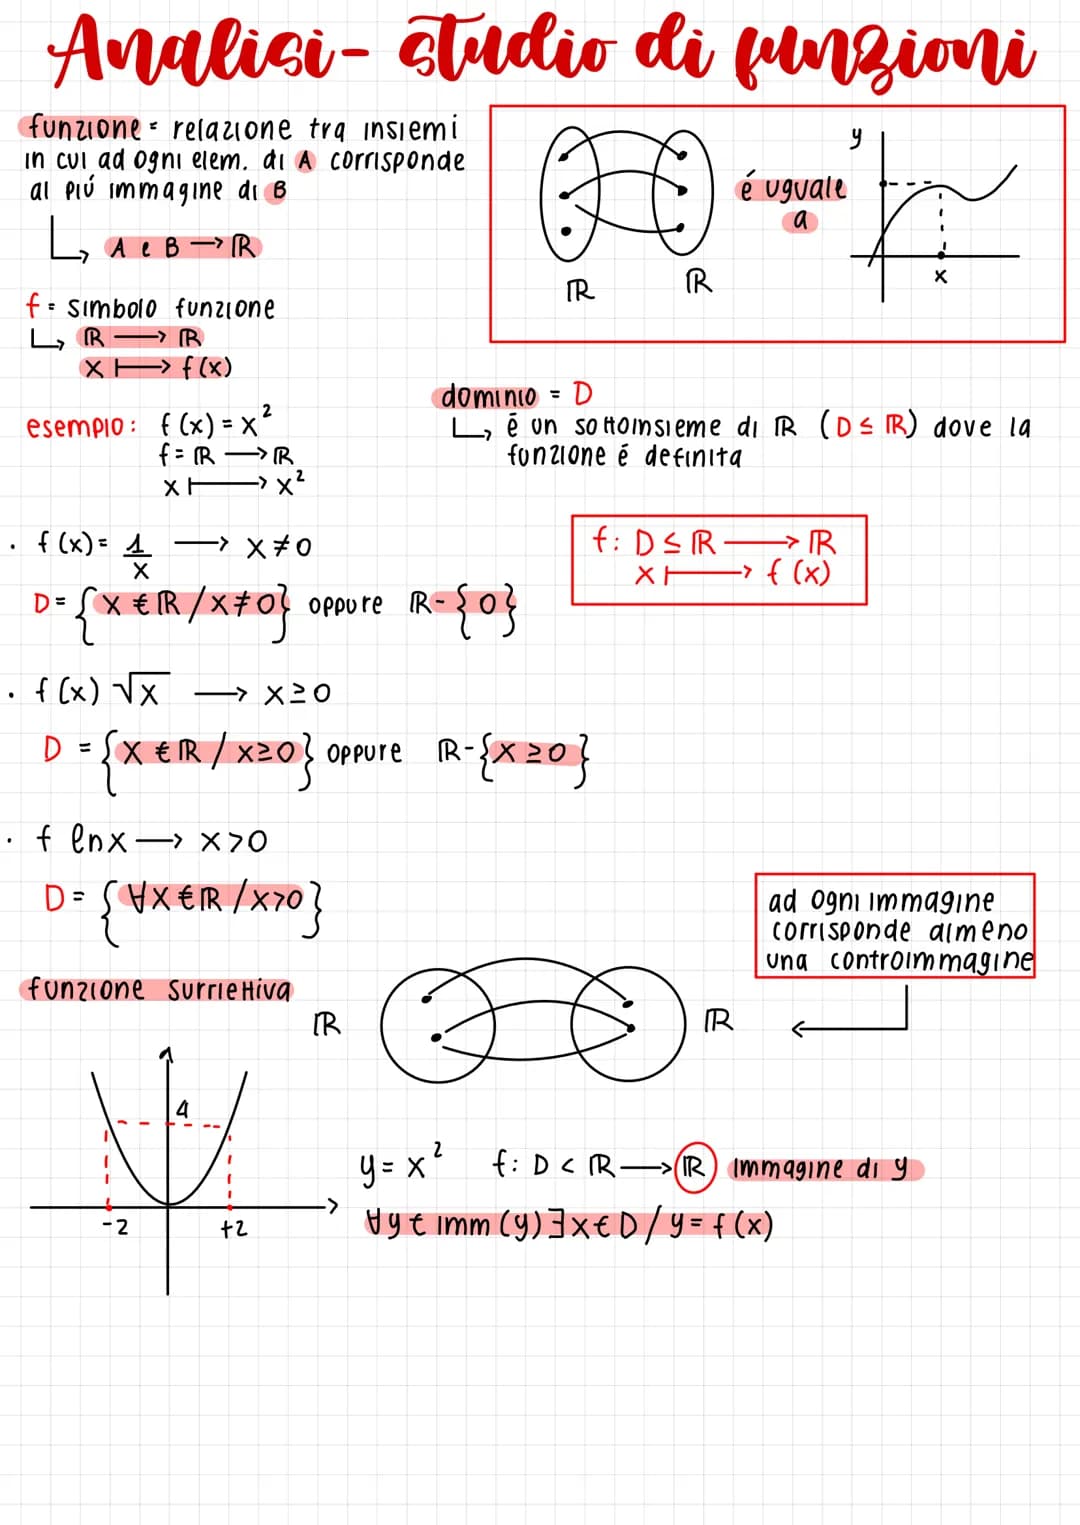 Analisi - studio di funzioni
funzione = relazione tra insiemi
in cui ad ogni elem. di A corrisponde
al piú immagine di B
A e B → ℝ
ℝ
ℝ
é uguale
a
y
x
f = simbolo funzione
ℝ → ℝ
x ↦ f(x)
esempio: f(x) = x²
f = ℝ → ℝ
x ↦ x²
dominio = D
é un sottoinsieme di ℝ (D ≤ ℝ) dove la
funzione é definita
f: D ≤ ℝ → ℝ
x ↦ f(x)
. f(x) = 1/x → x ≠ 0
D = {x € ℝ / x ≠ 0} oppure ℝ - {0}
. f(x) √x → x ≥ 0
D = {x € ℝ / x ≥ 0} oppure ℝ - {x ≥ 0}
. f lnx → x > 0
D = {∀x € ℝ / x > 0}
ad ogni immagine
corrisponde almeno
una controimmagine
funzione surriettiva
ℝ
ℝ
4
-2
+2
y = x² f: D < ℝ → ℝ immagine di y
∀y € imm (y) ∃ x € D / y = f(x)